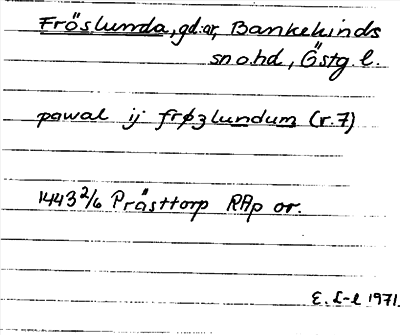 Fröslunda, gd:ar, Bankekinds
sn o. hd, Östg. l.
pawal ij frøzlundum (r. 7)
1443 2/6 Prästtorp RAp or.
E. L-l 1971.